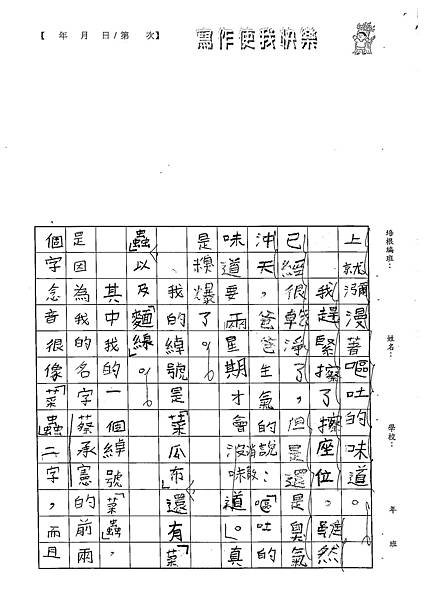 【 年 月 日/第 次】
寫作使我快樂
培根編班：
姓名：
學校：
年 班
上就瀰漫著嘔吐的味道。
我趕緊擦了擦座位，雖然
已經很乾淨了，但是還是臭氣
沖天，爸爸生氣的說：「嘔吐的
味道要兩星期才會消散沒味道」。真
是糗爆了。
我的綽號是「菜瓜布」還有「菜
蟲」以及「麵線」。
其中我的一個綽號「菜蟲」，
是因為我的名字蔡承憲的前兩
個字念音很像「菜蟲」二字，而且